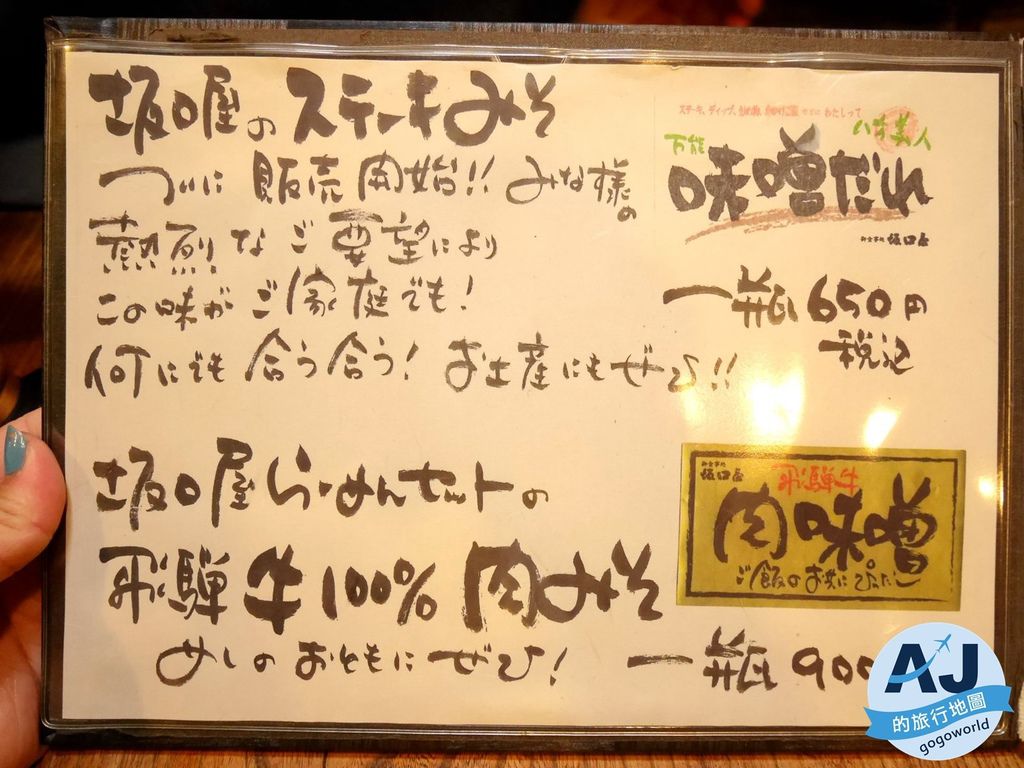 坂口屋のステーキみそ
ついに販売開始!! みな様の
熱烈なご要望により
この味がご家庭でも!
何にでも合う合う! お土産にもぜひ!!
万能
味噌だれ
坂口屋
一瓶650円
税込
坂口屋らーめんセットの
飛騨牛100%肉みそ
めしのおともにぜひ!
一瓶900
坂口屋
飛騨牛
肉味噌
ご飯のお供にぴったし
AJ
的旅行地圖
gogoworld